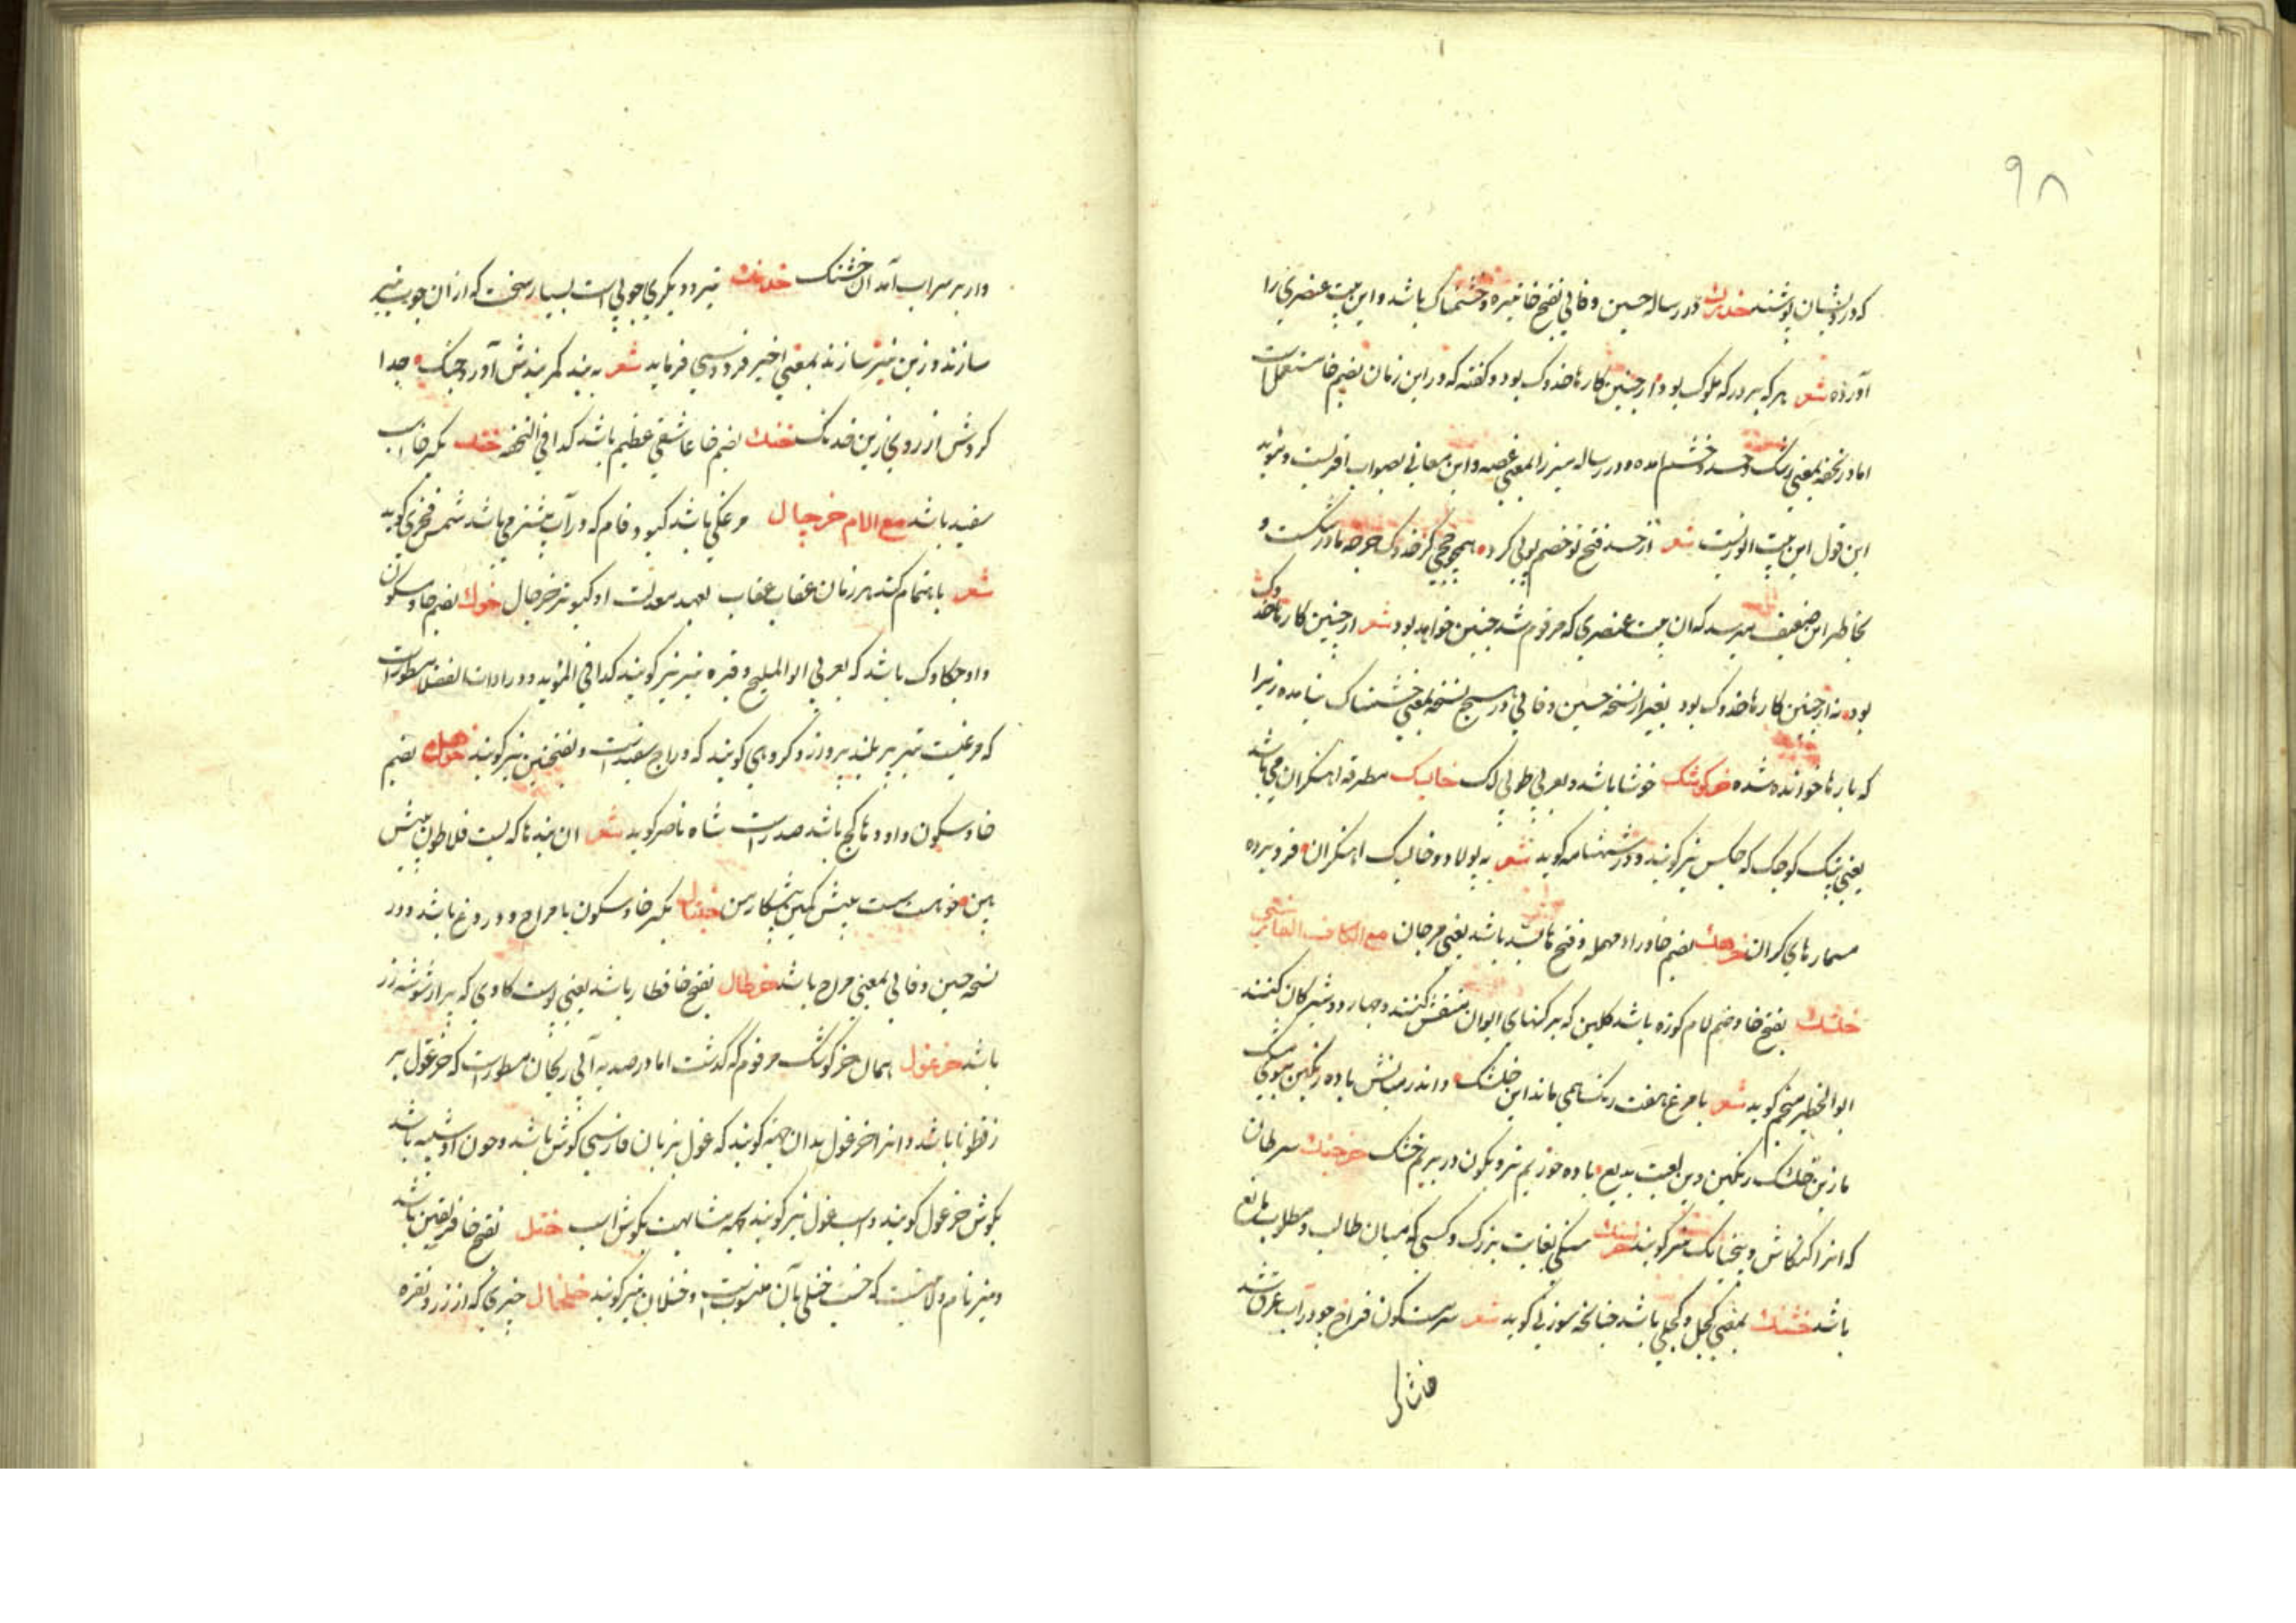 ۹۸
که درویشان پوشند خدوک در رساله حسین وفائی بفتح خا خیره و خشمناک باشد و این بیت عنصری را
آورده شعر هر که بر درکه ملوک بود از چنین کارها خدوک بود و گفته که در این زمان بضم خا مستعمل است
اما در تحفه بمعنی رشک و حسد و خشم آمده و در رساله میرزا بمعنی غصه و این معانی بصواب اقربست و مؤید
این قول این بیت انوریست شعر از حسد فتح تو خصم تو پی کرد همچو جحی کز خدوک چرخه مادر شکست و
بخاطر این ضعیف میرسد که آن بیت عنصری که مرقوم شد چنین خواهد بود شعر از چنین کارها خدوک
بود نه از چنین کارها خدوک بود بغیر از نسخه حسین وفائی در هیچ نسخه بمعنی خشمناک نیامده زیرا
که بارها خوانده شده خرکوشک خوشا باشد و بعربی طوبی لک خایسک مطرقه اهنکران می باشد
یعنی پتک کوچک که چکس نیز کویند و در شهنامه کوید شعر به پولاد و خایسک اهنکران فرو برده
مسمارهای کران خروهک بضم خا و راء مهمله و فتح ها بسد باشد یعنی مرجان مع الکاف الفارسی
خلشک بفتح خا و ضم لام کوزه باشد کلین که برکهای الوان منقش کنند و بهار و دوشیزکان کنند
ابوالخطیر منجم کوید شعر با مرغ هفت رنک همی ماند این خلشک و اندر میانش باده رنکین بوی مشک
ما زین خلشک رنکین وین لعبت بدیع باده خوریم تر و بکون در بریم خشک خرچنک سرطان
که انرا کلنکاش و پنجپایک نیز کویند خرسنک سنکی بغایت بزرک و کسی که میان طالب و مطلوب مانع
باشد خشنک بمعنی کچل و کچلی باشد چنانکه سوزنی کوید شعر سرمست کون فراخ چو در آب غرق شد
وار بر سراب آمد آن خشنک خدنک تیر و دیکر چوبی است بسیار سخت که از آن چوب تیر
سازند و زین نیز سازند بمعنی اخیر فردوسی فرماید شعر به بند کمربندش آورد چنک جدا
کردش از روی زین خدنک خنک بضم خا عاشقی عظیم باشد کذا فی التحفه خنک بکسر خا اسب
سفید باشد مع اللام خرچال مرغکی باشد کبود فام که در آب بیشتر می باشد شمس فخری کوید
شعر باهتمام کند هر زمان عقاب عقاب بعهد معدلت او کبوتر خرچال خول بضم خا و سکون
واو چکاوک باشد که بعربی ابوالملیح و قبره نیز کویند کذا فی المؤید و در ادات الفضلا مسطورست
که مرغیست تیزپر بلند پرواز و کروهی کویند که دراج سفیدست و بفتحتین نیز کویند خوهل بضم
خا و سکون واو و ها کج باشد ضد راست شاه ناصر کوید شعر آن بندها که بست فلاطون پیش
بین خوهلست و سست پیش کهین پیشکار من خنبال بکسر خا و سکون با مزاح و دروغ باشد و در
نسخه حسین وفائی بمعنی مزاح باشد خرطال بفتح خا قنطار باشد یعنی پوست کاوی که پر از شوشه زر
باشد خرغول همان خرکوشک مرقوم که گذشت اما در صد باب آتی ریحان مسطورست که خرغول بزر
قطونا باشد و انرا خرغول بدان جهت کویند که غول بزبان فارسی کوش باشد و چون او شبیه باشد
بکوش خر خرغول کویند و اسپغول نیز کویند بجهت مشابهت بکوش اسب ختل بفتح خا فریفتن باشد
و نیز نام ولایتیست که خنک ختلی بآن منسوبست و ختلان نیز کویند خلخال چیزی که از زر و نقره